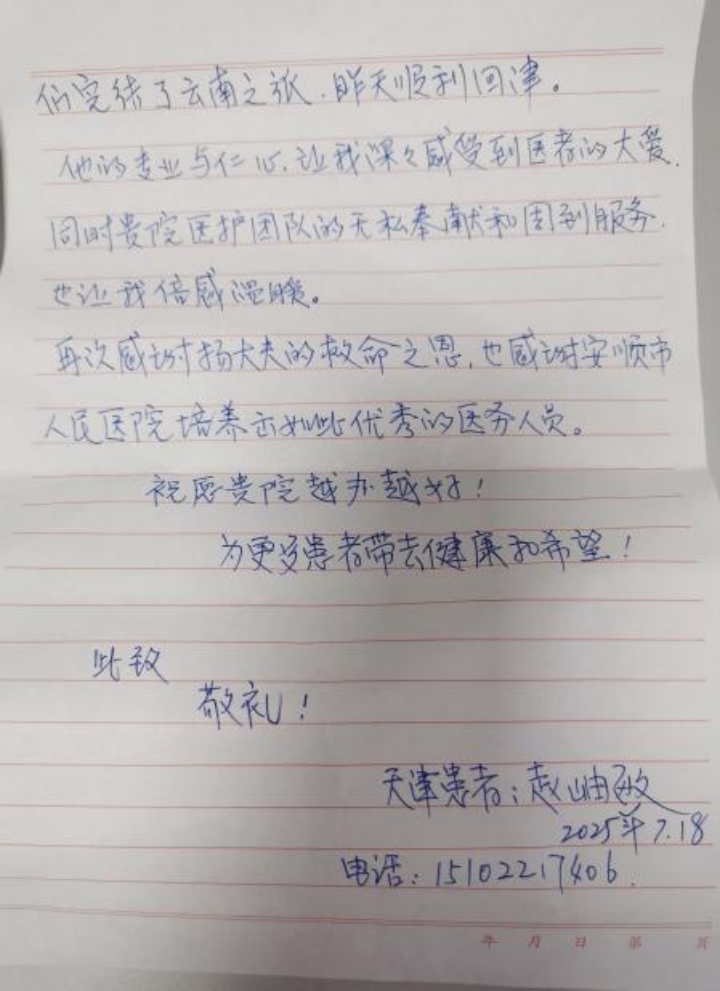 们完结了云南之旅.昨天顺利回津。
他的专业与仁心,让我深深感受到医者的大爱.
同时贵院医护团队的无私奉献和周到服务.
也让我倍感温暖。
再次感谢杨大夫的救命之恩,也感谢安顺市
人民医院培养出如此优秀的医务人员。
祝愿贵院越办越好!
为更多患者带去健康和希望!
此致
敬礼!
天津患者:赵岫敏
2025年7.18
电话:15102217406.
年 月 日 第 页